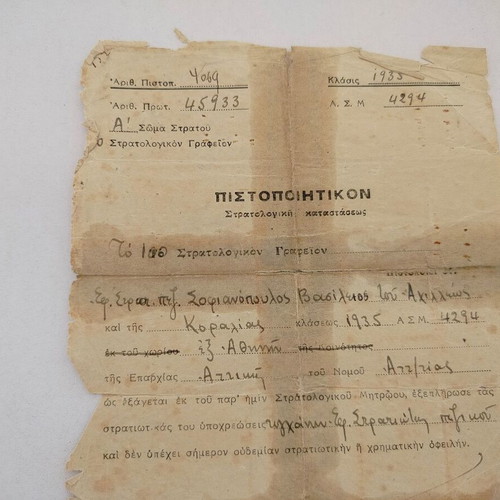 Ἀριθ. Πιστοπ. 4069
Κλάσις 1935
Ἀριθ. Πρωτ. 45933
Α Σ Μ 4294
Α' Σῶμα Στρατοῦ
Στρατολογικὸν Γραφεῖον
ΠΙΣΤΟΠΟΙΗΤΙΚΟΝ
Στρατολογικῆς καταστάσεως
Τὸ Στρατολογικὸν Γραφεῖον
Σοφιανόπουλος Βασίλειος τοῦ Ἀχιλλέως
καὶ τῆς Κοραλίας κλάσεως 1935 ΑΣΜ. 4294
ἐκ τοῦ χωρίου ἐξ Ἀθηνῶν τῆς κοινότητος
τῆς Ἐπαρχίας Ἀττικῆς τοῦ Νομοῦ Ἀττ/βίας
ὡς ἐξάγεται ἐκ τοῦ παρ' ἡμῖν Στρατολογικοῦ Μητρῴου, ἐξεπλήρωσε τὰς
στρατιωτικάς του ὑποχρεώσεις τυγχάνων Ἐφ. Στρατιώτης πεζικοῦ
καὶ δὲν ὑπέχει σήμερον οὐδεμίαν στρατιωτικὴν ἢ χρηματικὴν ὀφειλήν.